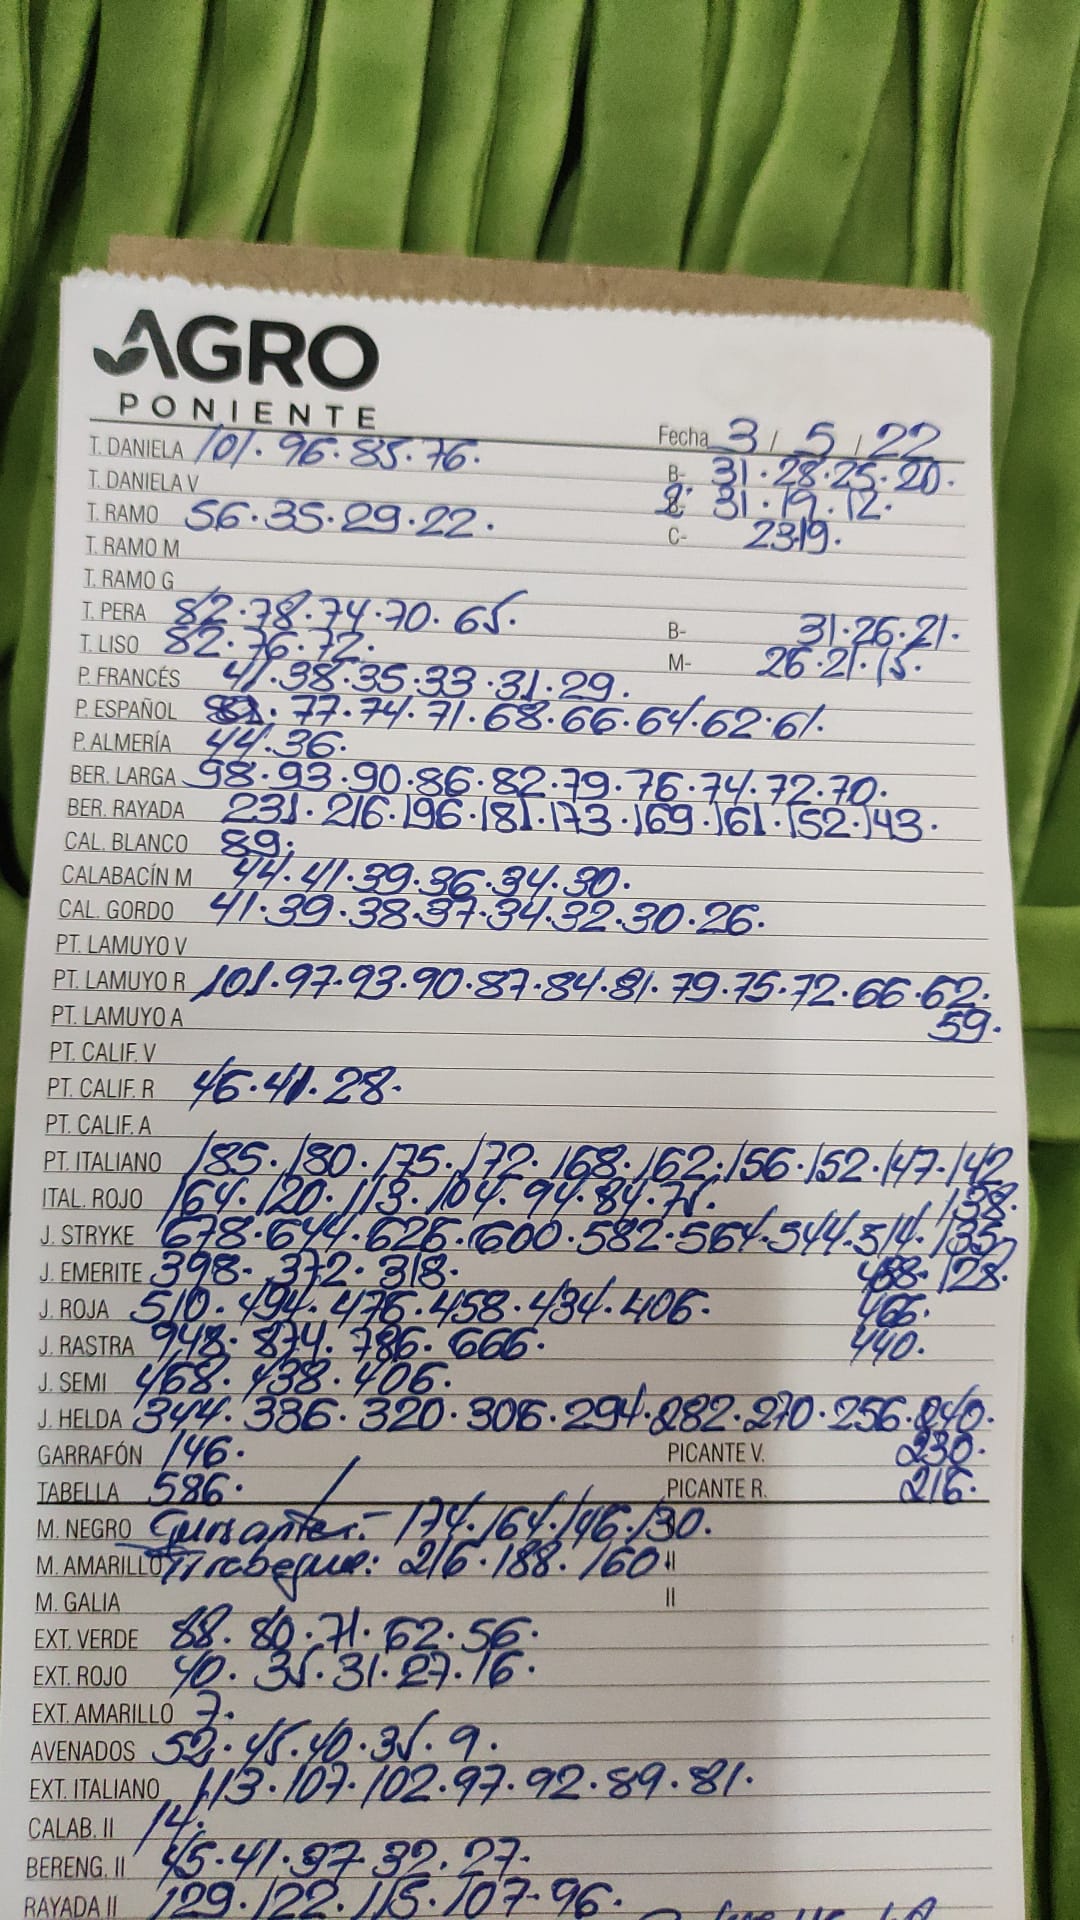 AGRO
PONIENTE
Fecha 3 / 5 / 22
T. DANIELA 101. 96. 85. 76. B- 31. 28. 25. 20.
T. DANIELA V 31. 19. 12.
T. RAMO 56. 35. 29. 22. C- 23 19.
T. RAMO M
T. RAMO G
T. PERA 82. 78. 74. 70. 65. B- 31. 26. 21.
T. LISO 82. 76. 72. M- 26. 21. 15.
P. FRANCÉS 41. 38. 35. 33. 31. 29.
P. ESPAÑOL 77. 74. 71. 68. 66. 64. 62. 61.
P. ALMERÍA 44. 36.
BER. LARGA 98. 93. 90. 86. 82. 79. 76. 74. 72. 70.
BER. RAYADA 231. 216. 196. 181. 173. 169. 161. 152. 143.
CAL. BLANCO 89.
CALABACÍN M 44. 41. 39. 36. 34. 30.
CAL. GORDO 41. 39. 38. 37. 34. 32. 30. 26.
PT. LAMUYO V
PT. LAMUYO R 101. 97. 93. 90. 87. 84. 81. 79. 75. 72. 66. 62.
PT. LAMUYO A 59.
PT. CALIF. V
PT. CALIF. R 46. 41. 28.
PT. CALIF. A
PT. ITALIANO 185. 180. 175. 172. 168. 162. 156. 152. 147. 142
ITAL. ROJO 164. 120. 113. 104. 94. 84. 75. 138.
J. STRYKE 678. 644. 626. 600. 582. 564. 544. 514. 135
J. EMERITE 398. 372. 318. 128.
J. ROJA 510. 494. 476. 458. 434. 406. 466.
J. RASTRA 948. 874. 786. 666. 440.
J. SEMI 468. 438. 406.
J. HELDA 344. 336. 320. 306. 294. 282. 270. 256. 240.
GARRAFÓN 146. PICANTE V. 230.
TABELLA 586. PICANTE R. 216.
M. NEGRO Guisantes:- 174. 164. 146. 130.
M. AMARILLO Tirabeque: 216. 188. 160 II
M. GALIA II
EXT. VERDE 88. 80. 71. 62. 56.
EXT. ROJO 40. 35. 31. 27. 16.
EXT. AMARILLO 7.
AVENADOS 52. 45. 40. 35. 9.
EXT. ITALIANO 113. 107. 102. 97. 92. 89. 81.
CALAB. II 14.
BERENG. II 45. 41. 37. 32. 27.
RAYADA II 129. 122. 115. 107. 96.